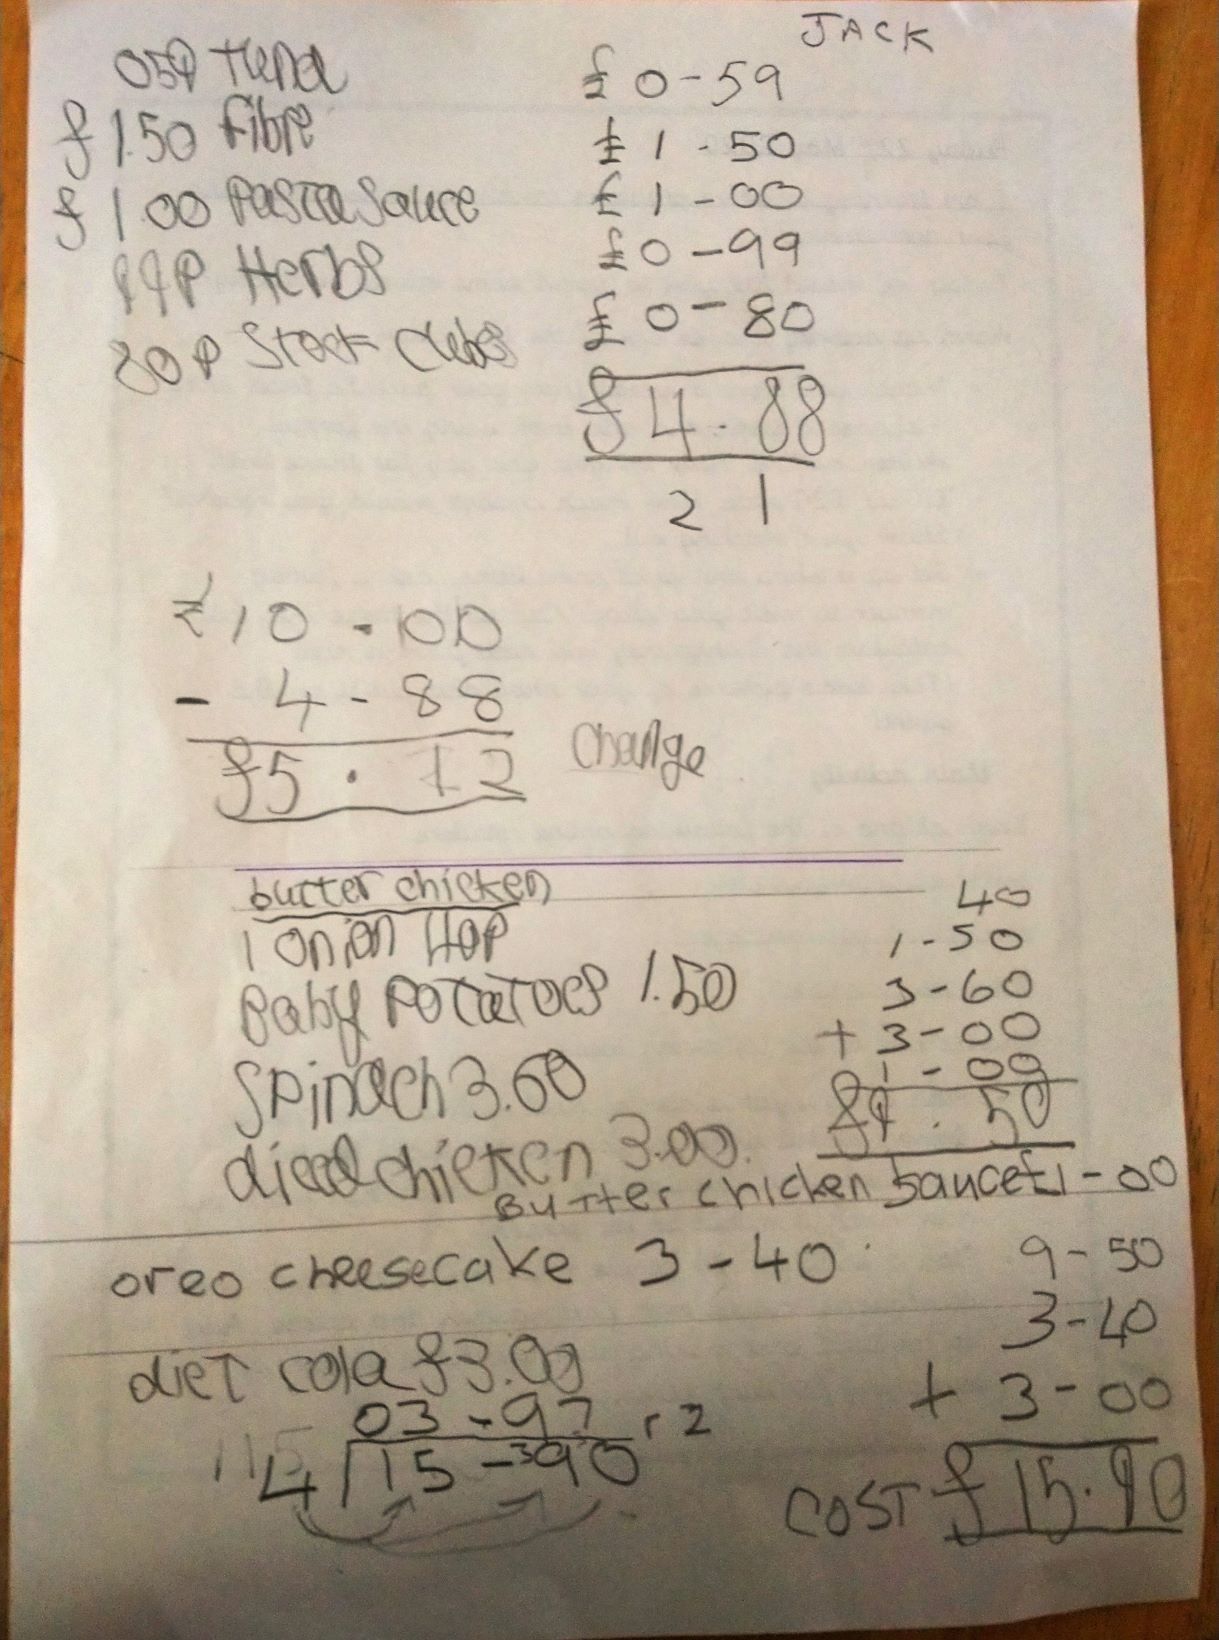 JACK
059 Tuna
£1.50 fibre
£1.00 Pasta Sauce
99P Herbs
80P Stock Cubes
£0-59
£1-50
£1-00
£0-99
£0-80
£4.88
2 1
£10-00
- 4-88
£5.12 Change
butter chicken
1 Onion 40P
Baby Potatoes 1.50
Spinach 3.60
diced chicken 3.00
Butter chicken Sauce £1-00
40
1-50
3-60
+ 3-00
1-00
£9.50
oreo cheesecake 3-40
diet cola £3.00
9-50
3-40
+ 3-00
COST £15.90
03-97 r2
4 15-390